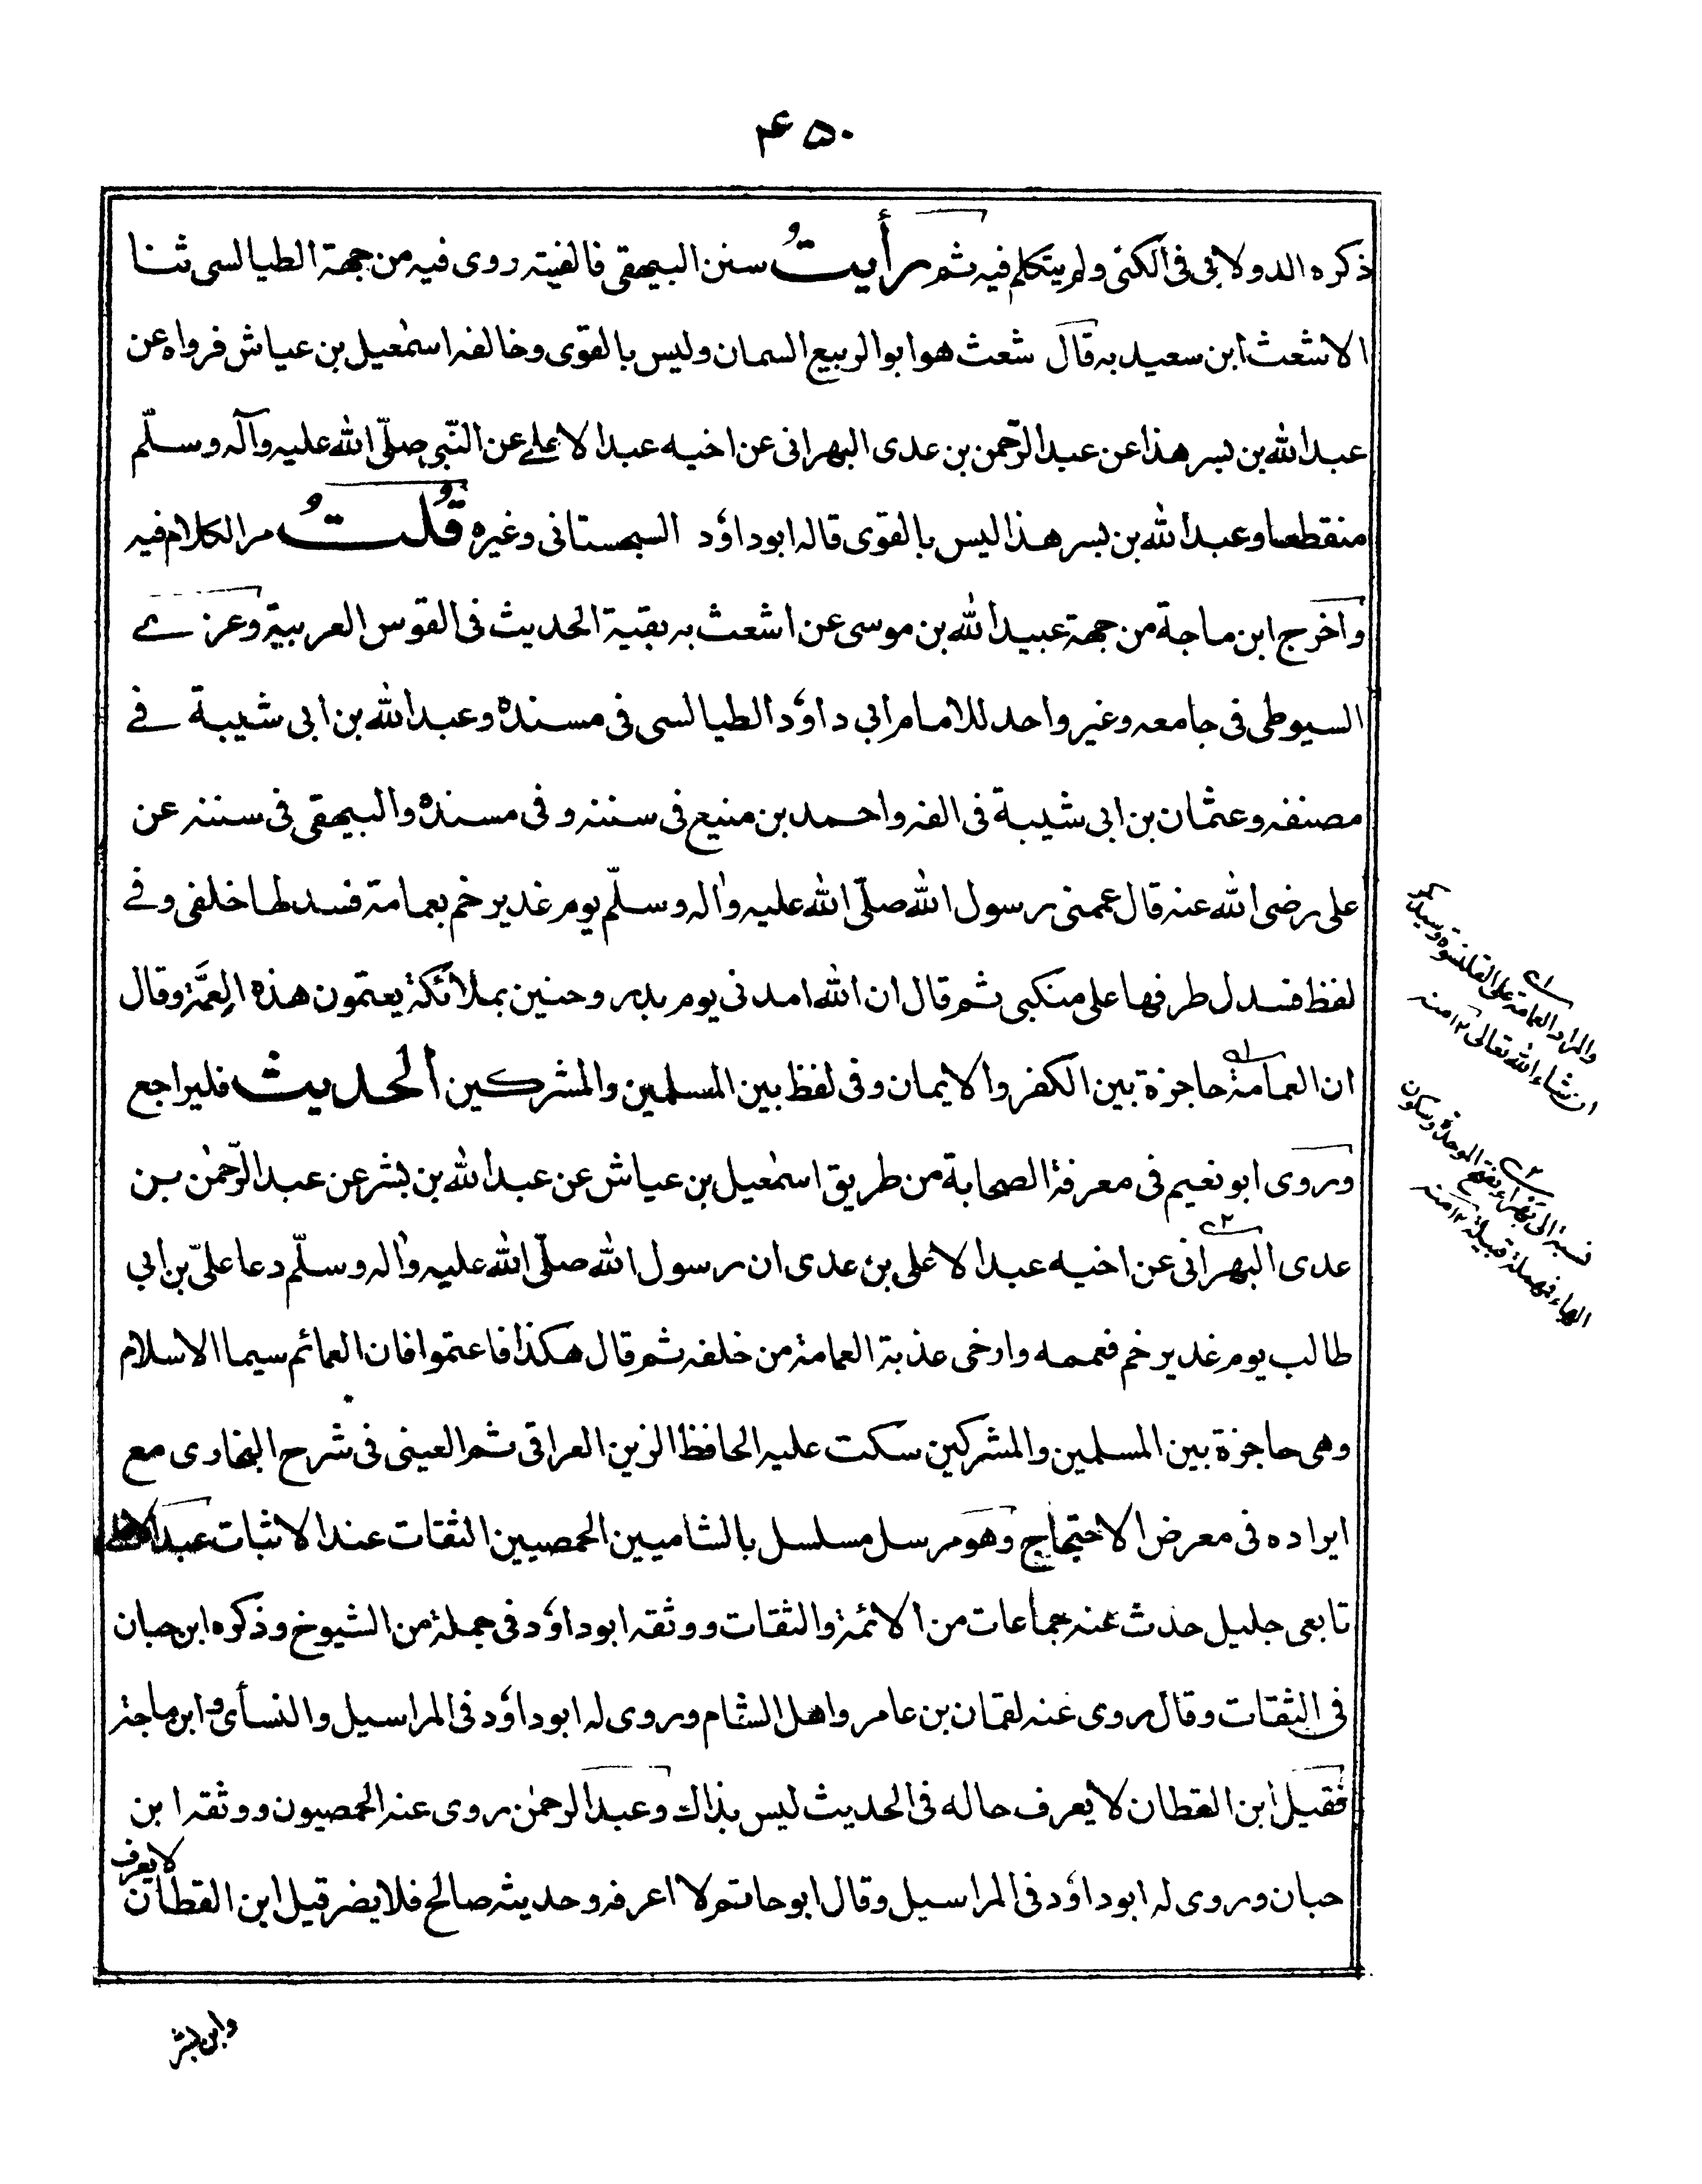 ۴۵۰
ذكره الدولابى فى الكنى ولم يتكلم فيه ثم رأيتُ سنن البيهقى فالفيته روى فيه من جهة الطيالسى ثنا
الاشعث ابن سعيد به قال شعث هو ابو الربيع السمان وليس بالقوى وخالفه اسمٰعيل بن عياش فرواه عن
عبد الله بن بسر هذا عن عبد الرّحمن بن عدى البهرانى عن اخيه عبد الاعلے عن النّبى صلّى الله عليه وآله وسلّم
منقطعا وعبد الله بن بسر هذا ليس بالقوى قاله ابو داؤد السجستانى وغيره قُلتُ مر الكلام فيه
واخرج ابن ماجة من جهة عبيد الله بن موسى عن اشعث به بقية الحديث فى القوس العربية وعزے
السيوطى فى جامعه وغير واحد للامام ابى داؤد الطيالسى فى مسنده وعبد الله بن ابى شيبة فے
مصنفه وعثمان بن ابى شيبة فى الفه واحمد بن منيع فى سننه و فى مسنده والبيهقى فى سننه عن
على رضى الله عنه قال عممنى رسول الله صلّى الله عليه واٰله وسلّم يوم غدير خم بعمامة فسدلها خلفى وفے
لفظ فسدل طرفها على منكبى ثم قال ان الله امدنى يوم بدر وحنين بملائكة يعتمون هذه العِمَّة وقال
ان العمامة حاجزة بين الكفر والايمان وفى لفظ بين المسلمين والمشركين الحديث فليراجع
وروى ابو نعيم فى معرفة الصحابة من طريق اسمٰعيل بن عياش عن عبد الله بن بشر عن عبد الرّحمٰن بن
عدى البهرانى عن اخيه عبد الاعلى بن عدى ان رسول الله صلّى الله عليه واٰله وسلّم دعا علىّ بن ابى
طالب يوم غدير خم فعممه وارخى عذبة العمامة من خلفه ثم قال هكذا فاعتموا فان العمائم سيما الاسلام
وهى حاجزة بين المسلمين والمشركين سكت عليه الحافظ الزين العراقى ثم العينى فى شرح البخارى مع
ايراده فى معرض الاحتجاج وهو مرسل مسلسل بالشاميين الحمصيين الثقات عند الاثبات عبد الاعلى
تابعى جليل حدث عنه جماعات من الائمة والثقات ووثقه ابو داؤد فى جملة من الشيوخ وذكره ابن حبان
فى الثقات وقال روى عنه لقمان بن عامر واهل الشام وروى له ابو داؤد فى المراسيل والنسأى وابن ماجة
فقيل ابن القطان لا يعرف حاله فى الحديث ليس بذاك وعبد الرحمٰن روى عنه الحمصيون ووثقه ابن
حبان وروى له ابو داؤد فى المراسيل وقال ابو حاتم لا اعرفه وحديثه صالح فلا يضر قيل ابن القطان لا يعرف
وابن بشر
؎۱
والمراد العمامة على القلنسوة وسيذكر
ان شاء الله تعالى ١٢ منه
؎۲
نسبة الى بهراء بفتح الموحدة وسكون
الهاء فمهملة قبيلة ١٢ منه